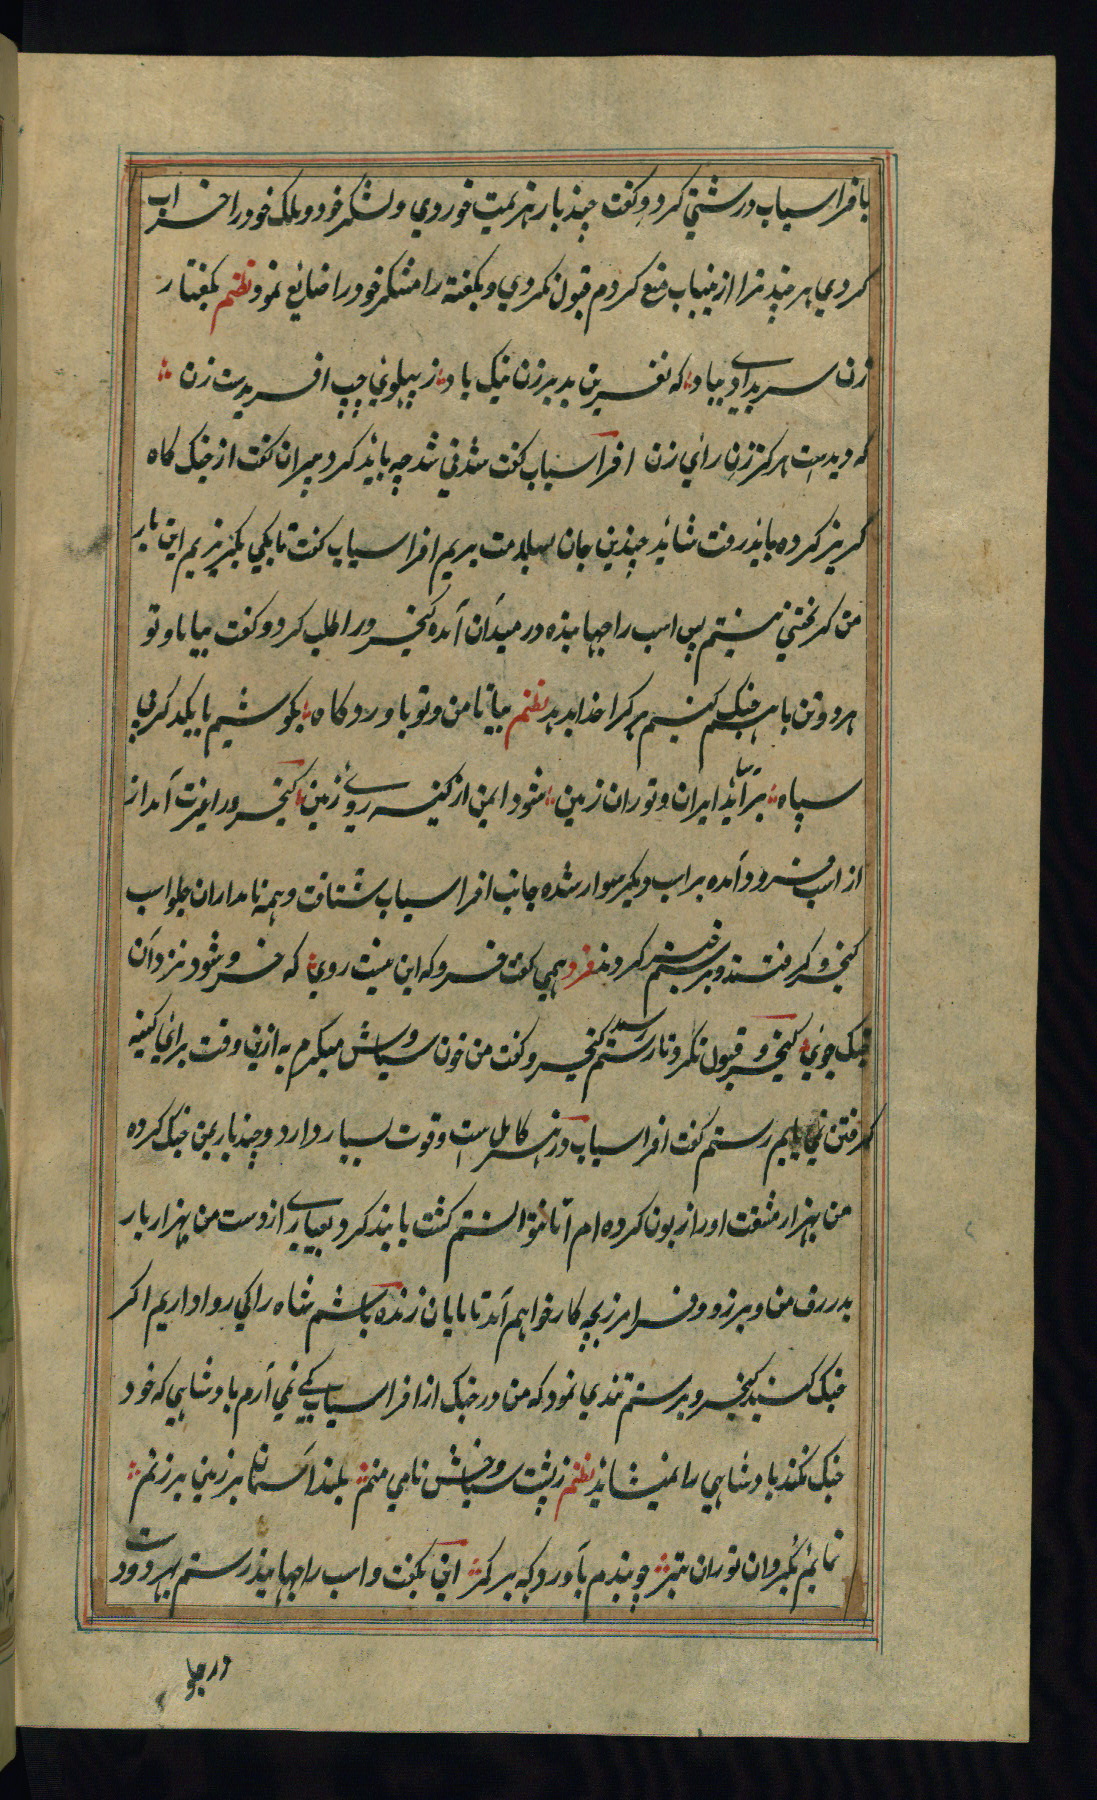 بافراسیاب درشتی کرد و کفت چند بار هزیمت خوردی و لشکر خود و ملک خود را خراب
کردی هر چند ترا ازینباب منع کردم قبول نکردی و بکفته رامشکر خود را ضایع نمود نظم بکفتار
زن سر بدای دیباد که نفرین بد بر زن نیک باد ز پهلوی چپ افریدست زن
که دیدست هرکز زن رای زن افراسیاب کفت شدنی شد چه باید کرد پیران کفت از جنک کاه
کریز کرده باید رفت شاید چندین جان بسلامت بریم افراسیاب کفت تا بکی بکریزیم این بار
من کریختنی نیستم پس اسب را جهانیده در میدان آمده کیخسرو را طلب کرد و کفت بیا ما و تو
هر دو تن باهم جنک کنیم هر کرا خدا بدهد نظم بیا تا من و تو باوردکاه بکوشیم با یکدکر بی
سپاه برآید ایران و توران زمین شود ایمن از کینه روی زمین کیخسرو را غیرت آمد از
از اسب فرود آمده بر اسب دیکر سوار شده جانب افراسیاب شتافت و همه نامداران جلو اسب
کیخسرو کرفتند و رستم کردند فرد همی کفت خسرو که این نیست روی که خسرو شود نزد آن
جنک جوی کیخسرو قبول نکرد تا رستم رسید کیخسرو کفت من خون سیاوش میکیرم به ازین وقت برای کینه
کرفتن نمی یابم رستم کفت افراسیاب در هنر کامل است و قوت بسیار دارد و چند بار بمن جنک کرده
من بهزار مشقت او را زبون کرده ام اما نتوانستم کشت باید کرد بعیاری از دست من بهزار بار
بدر رفت من و برزو و فرامرز بچه کار خواهم آمد تا مایان زنده باشیم شاه را کی روا داریم اکر
جنک کنید کیخسرو بر رستم تندی نمود که من در جنک از افراسیاب کمی نمی آرم پادشاهی که خود
جنک نکند پادشاهی را نمیشاید نظم ز پشت سیاوخش نامی منم بلند آسمان بر زمین بر زنم
نمایم بکردان توران هنر چو بندم بآورد که بر کمر این بکفت و اسب را جهانید رستم بهر دو دست
در جلو